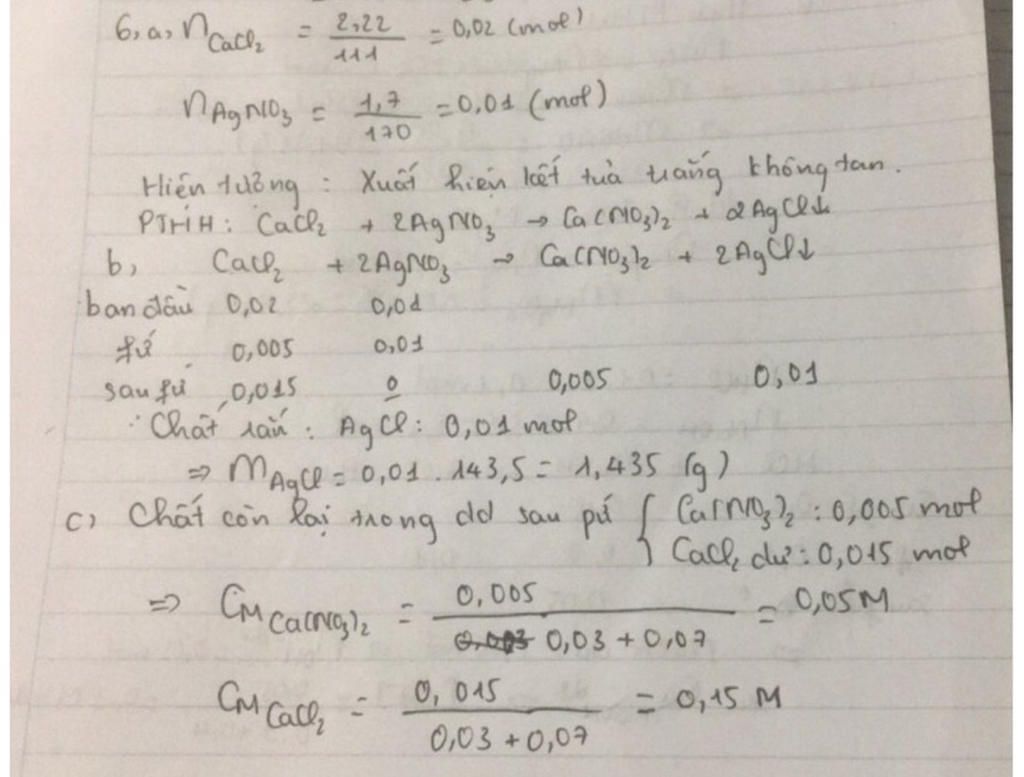 6, a, nCaCl₂ = 2,22 / 111 = 0,02 (mol)
nAgNO₃ = 1,7 / 170 = 0,01 (mol)
Hiện tượng : Xuất hiện kết tủa trắng không tan.
PTHH : CaCl₂ + 2AgNO₃ → Ca(NO₃)₂ + 2AgCl↓
b, CaCl₂ + 2AgNO₃ → Ca(NO₃)₂ + 2AgCl↓
ban đầu 0,02 0,01
pứ 0,005 0,01
sau pứ 0,015 0 0,005 0,01
Chất rắn : AgCl : 0,01 mol
⇒ mAgCl = 0,01 . 143,5 = 1,435 (g)
c) Chất còn lại trong dd sau pứ { Ca(NO₃)₂ : 0,005 mol
CaCl₂ dư : 0,015 mol
⇒ CM Ca(NO₃)₂ = 0,005 / 0,03 + 0,07 = 0,05M
CM CaCl₂ = 0,015 / 0,03 + 0,07 = 0,15 M